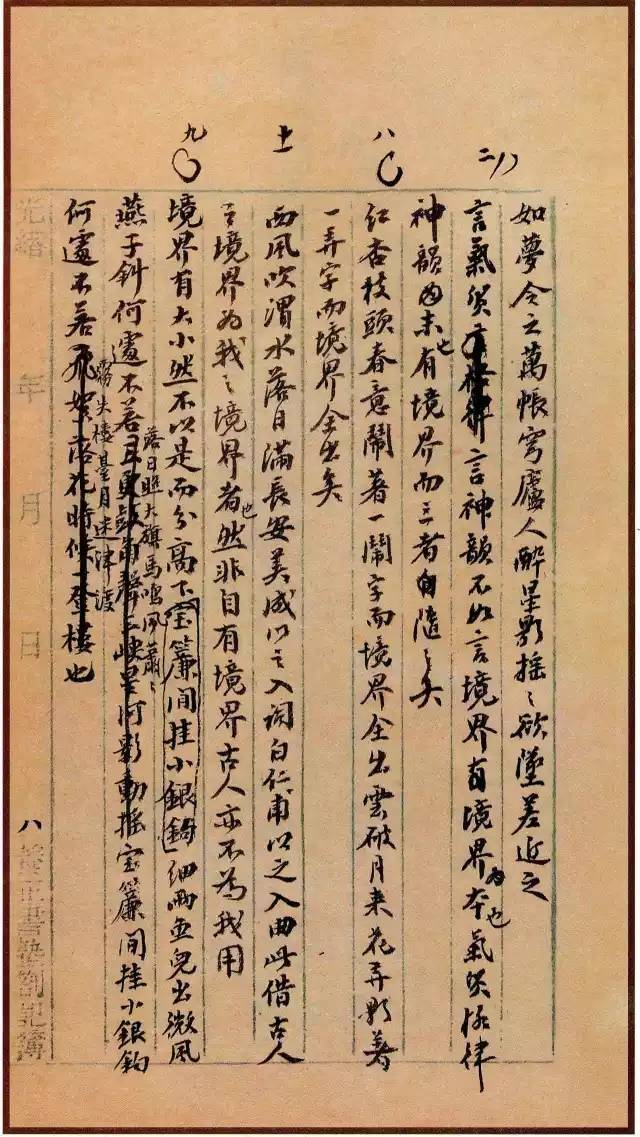 二八
如夢令之萬帳穹廬人醉星影搖〻欲墜差近之
言氣質言格律言神韻不如言境界有境界為本也氣質格律
神韻為末也有境界而三者自隨之矣
八
紅杏枝頭春意鬧著一鬧字而境界全出雲破月来花弄影著
一弄字而境界全出矣
十一
西風吹渭水落日滿長安美成以之入詞白仁甫以之入曲此借古人
之境界為我之境界者也然非自有境界古人亦不為我用
九
境界有大小然不以是而分高下宝簾间挂小銀鉤細雨魚兒出微風
燕子斜何遽不若五更鼓角聲三峽星河影動搖宝簾间挂小銀鉤
落日照大旗馬鳴風蕭〻
何遽不若飛絮落花時候一登樓也
霧失樓臺月迷津渡
光緒 年 月 日
八